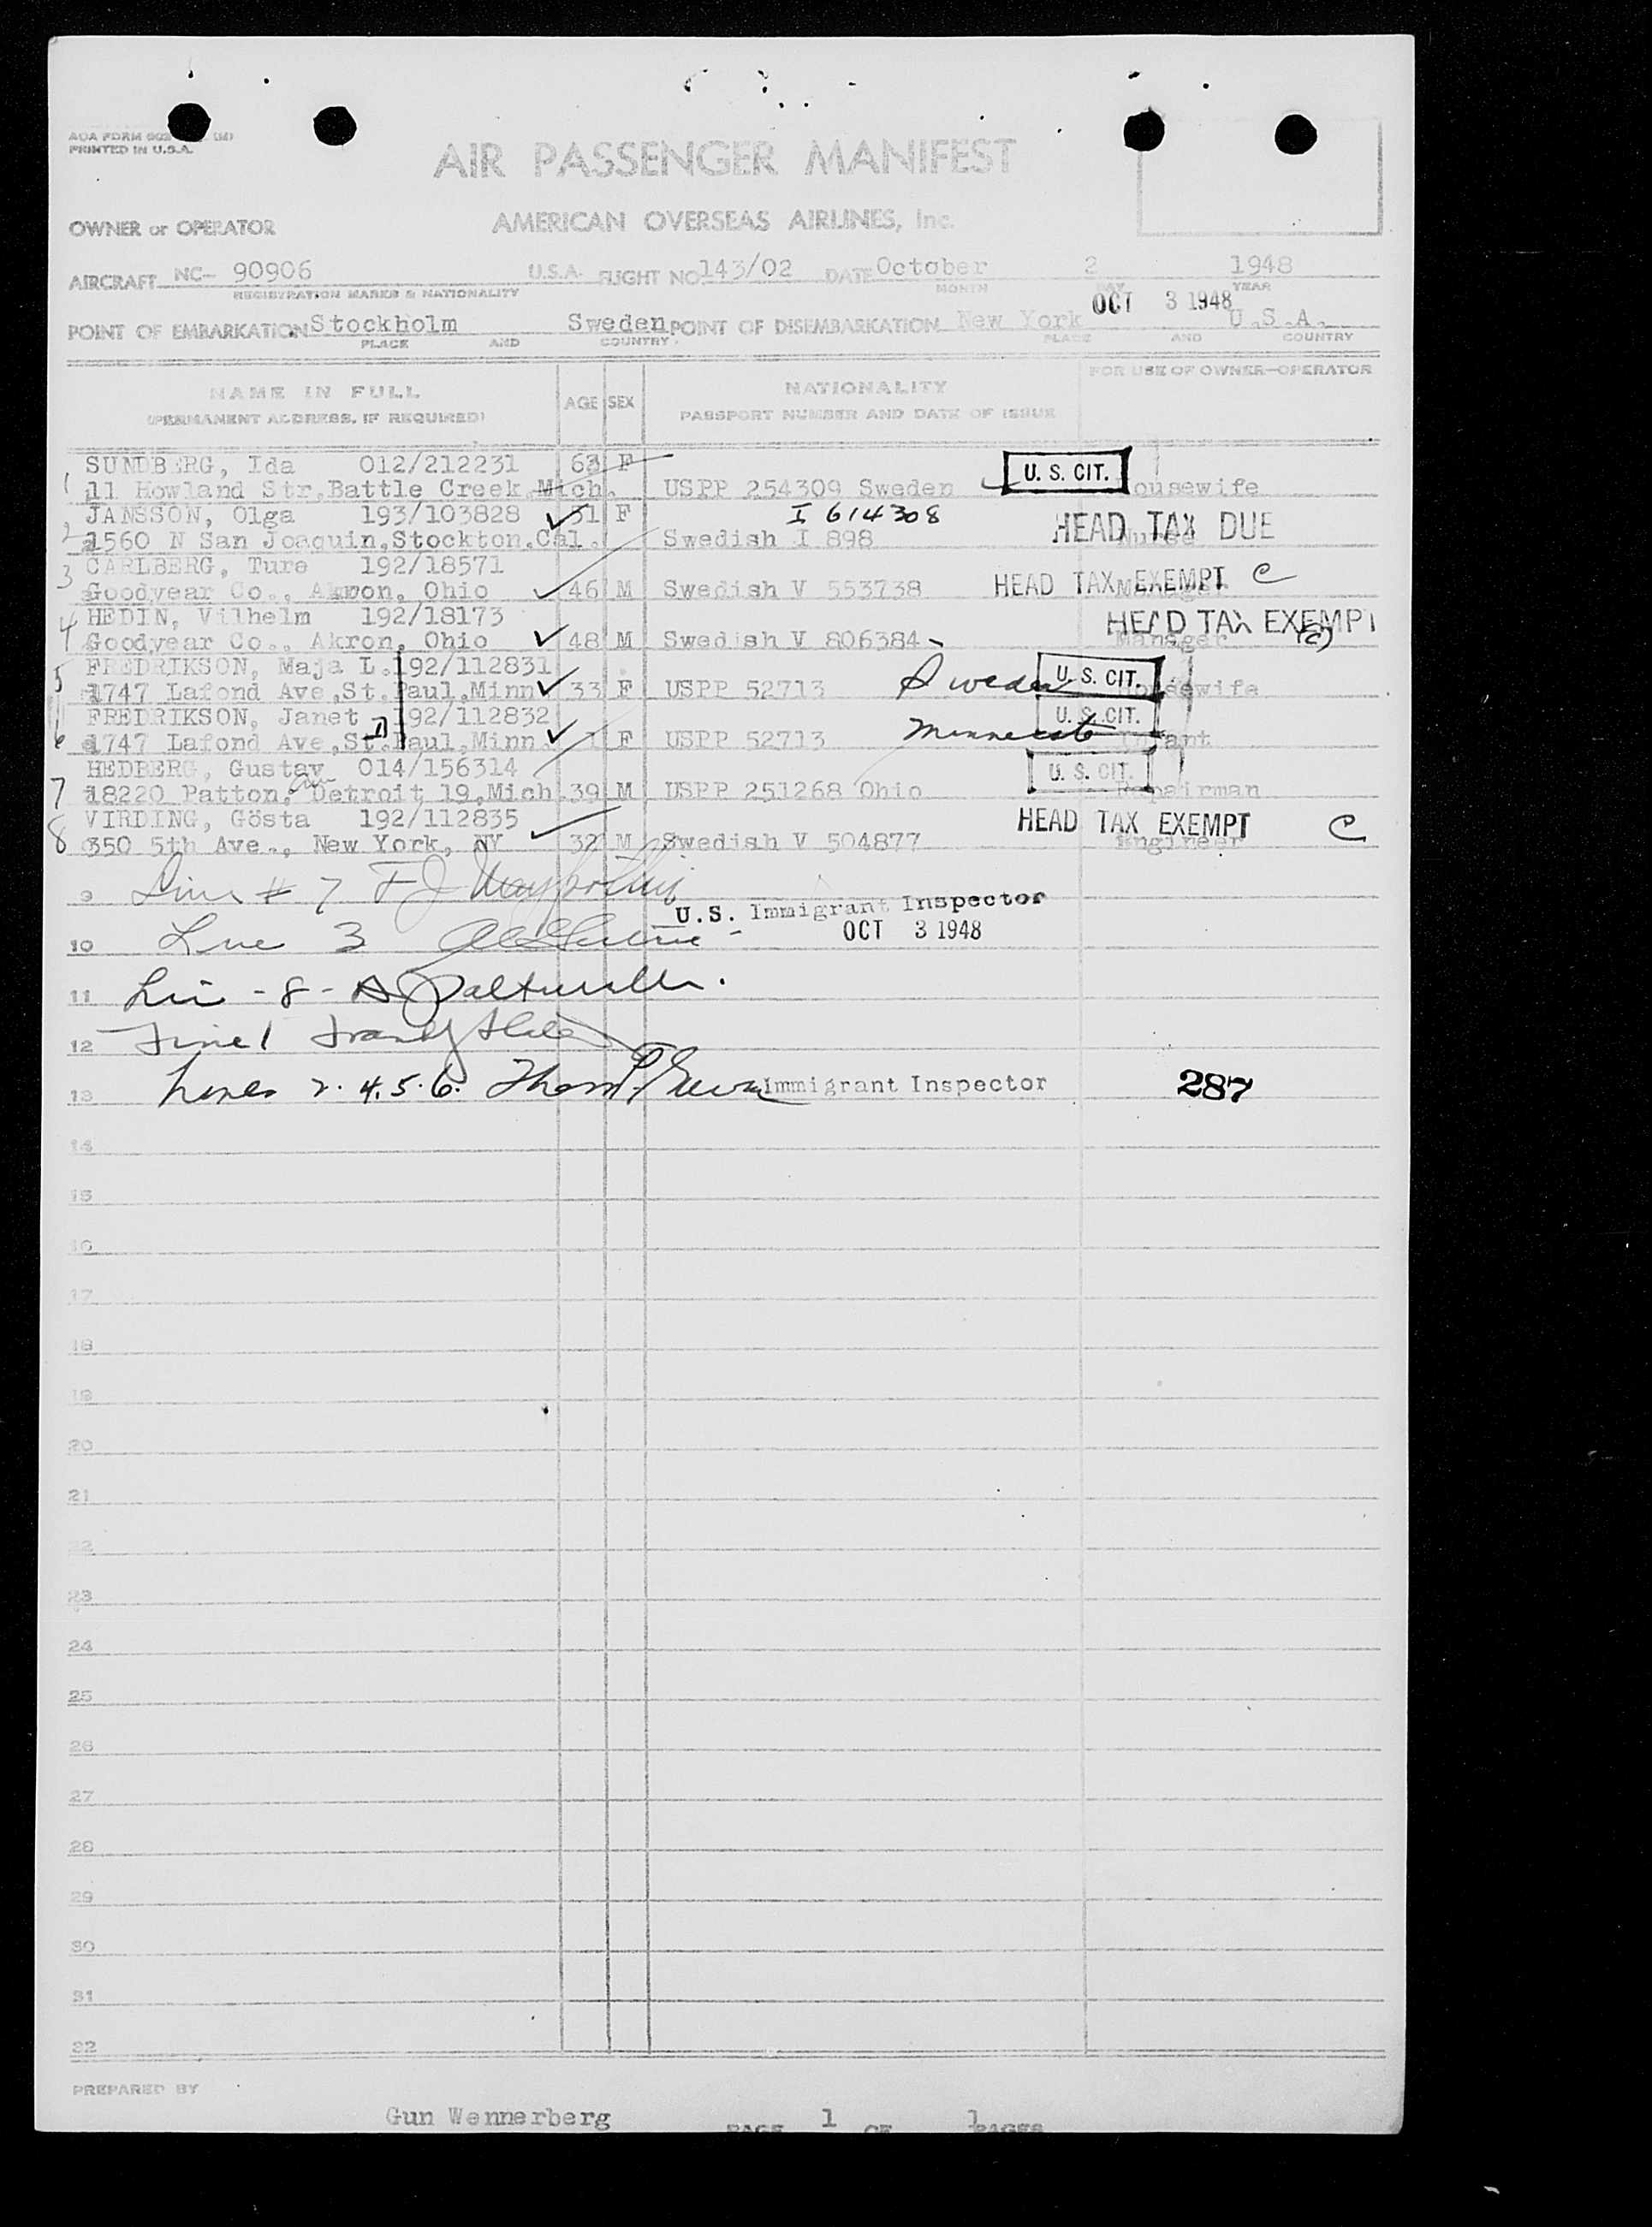 AOA FORM (M)
PRINTED IN U.S.A.
AIR PASSENGER MANIFEST
OWNER or OPERATOR AMERICAN OVERSEAS AIRLINES, Inc.
AIRCRAFT NC- 90906 U.S.A. FLIGHT NO 143/02 DATE October 2 1948
REGISTRATION MARKS & NATIONALITY MONTH DAY YEAR
OCT 3 1948
POINT OF EMBARKATION Stockholm Sweden POINT OF DISEMBARKATION New York U.S.A.
PLACE AND COUNTRY PLACE AND COUNTRY
NAME IN FULL AGE SEX NATIONALITY FOR USE OF OWNER-OPERATOR
(PERMANENT ADDRESS, IF REQUIRED) PASSPORT NUMBER AND DATE OF ISSUE
SUNDBERG, Ida 012/212231 63 F
1 11 Howland Str.Battle Creek,Mich. USPP 254309 Sweden U. S. CIT. ousewife
JANSSON, Olga 193/103828 31 F I 614308
2 1560 N San Joaquin,Stockton,Cal. Swedish I 898 HEAD TAX DUE
CARLBERG, Ture 192/18571
3 Goodyear Co., Akron, Ohio 46 M Swedish V 553738 HEAD TAX EXEMPT C
HEDIN, Vilhelm 192/18173 HEAD TAX EXEMPT
4 Goodyear Co., Akron, Ohio 48 M Swedish V 806384 Manager (C)
FREDRIKSON, Maja L. 192/112831
5 1747 Lafond Ave,St.Paul,Minn 33 F USPP 52713 Sweden U. S. CIT. Housewife
FREDRIKSON, Janet 192/112832 U. S. CIT.
6 1747 Lafond Ave,St.Paul,Minn. 1 F USPP 52713 Minnesota Infant
HEDBERG, Gustav 014/156314 U. S. CIT.
7 18220 Patton, Detroit 19,Mich 39 M USPP 251268 Ohio Repairman
VIRDING, Gösta 192/112835 HEAD TAX EXEMPT C
8 350 5th Ave., New York, NY 32 M Swedish V 504877 Engineer
9 Line # 7 F J
U.S. Immigrant Inspector
10 Line 3 OCT 3 1948
11 Lin - 8 -
12 Line 1
13 Lines 2. 4. 5. 6. Immigrant Inspector 287
14
15
16
17
18
19
20
21
22
23
24
25
26
27
28
29
30
31
32
PREPARED BY
Gun Wennerberg PAGE 1 OF 1 PAGES